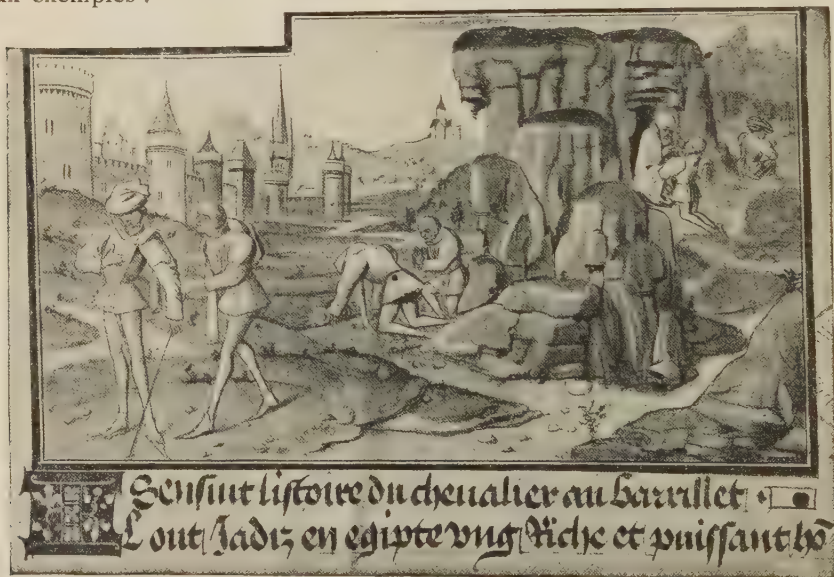 exemples :
Sensuit listoire du cheualier au barrillet .
I Lout Jadiz en egipte vng Riche et puissant hō